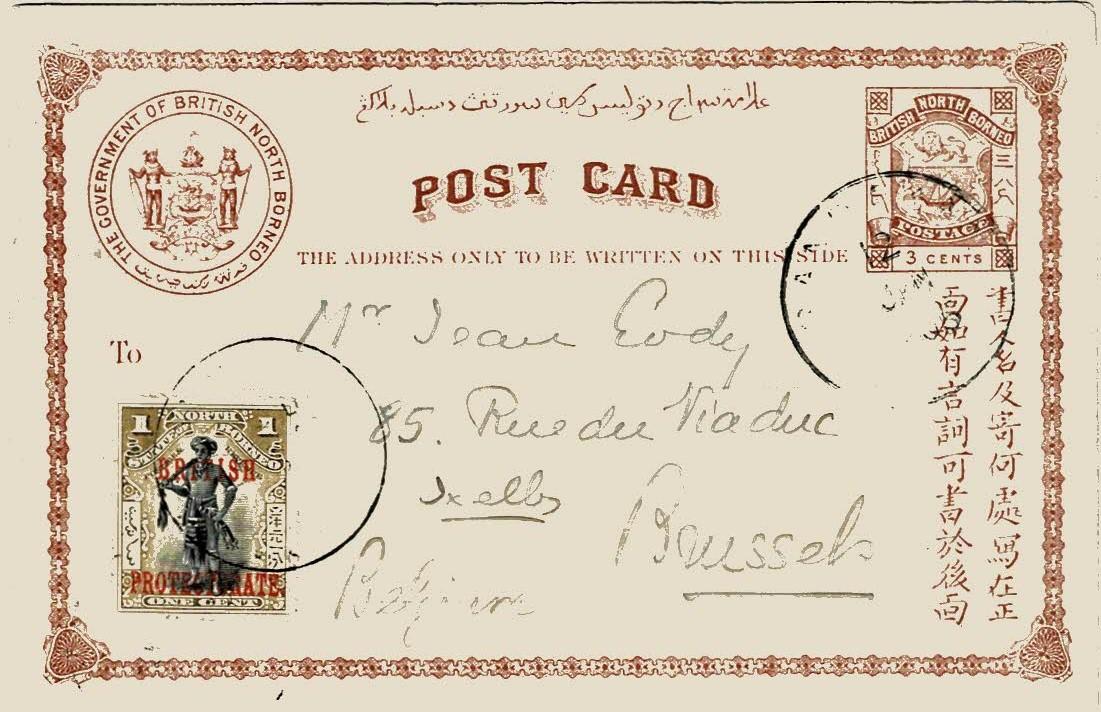 THE GOVERNMENT OF BRITISH NORTH BORNEO
POST CARD
THE ADDRESS ONLY TO BE WRITTEN ON THIS SIDE
BRITISH NORTH BORNEO
POSTAGE
3 CENTS
To
Mr Jean Eody
85. Rue du Viaduc
Ixelles
Brussels
Belgium
1 NORTH 1
STATE OF BORNEO
BRITISH
PROTECTORATE
ONE CENT
書人名及寄何處寫在正
面如有言詞可書於後面